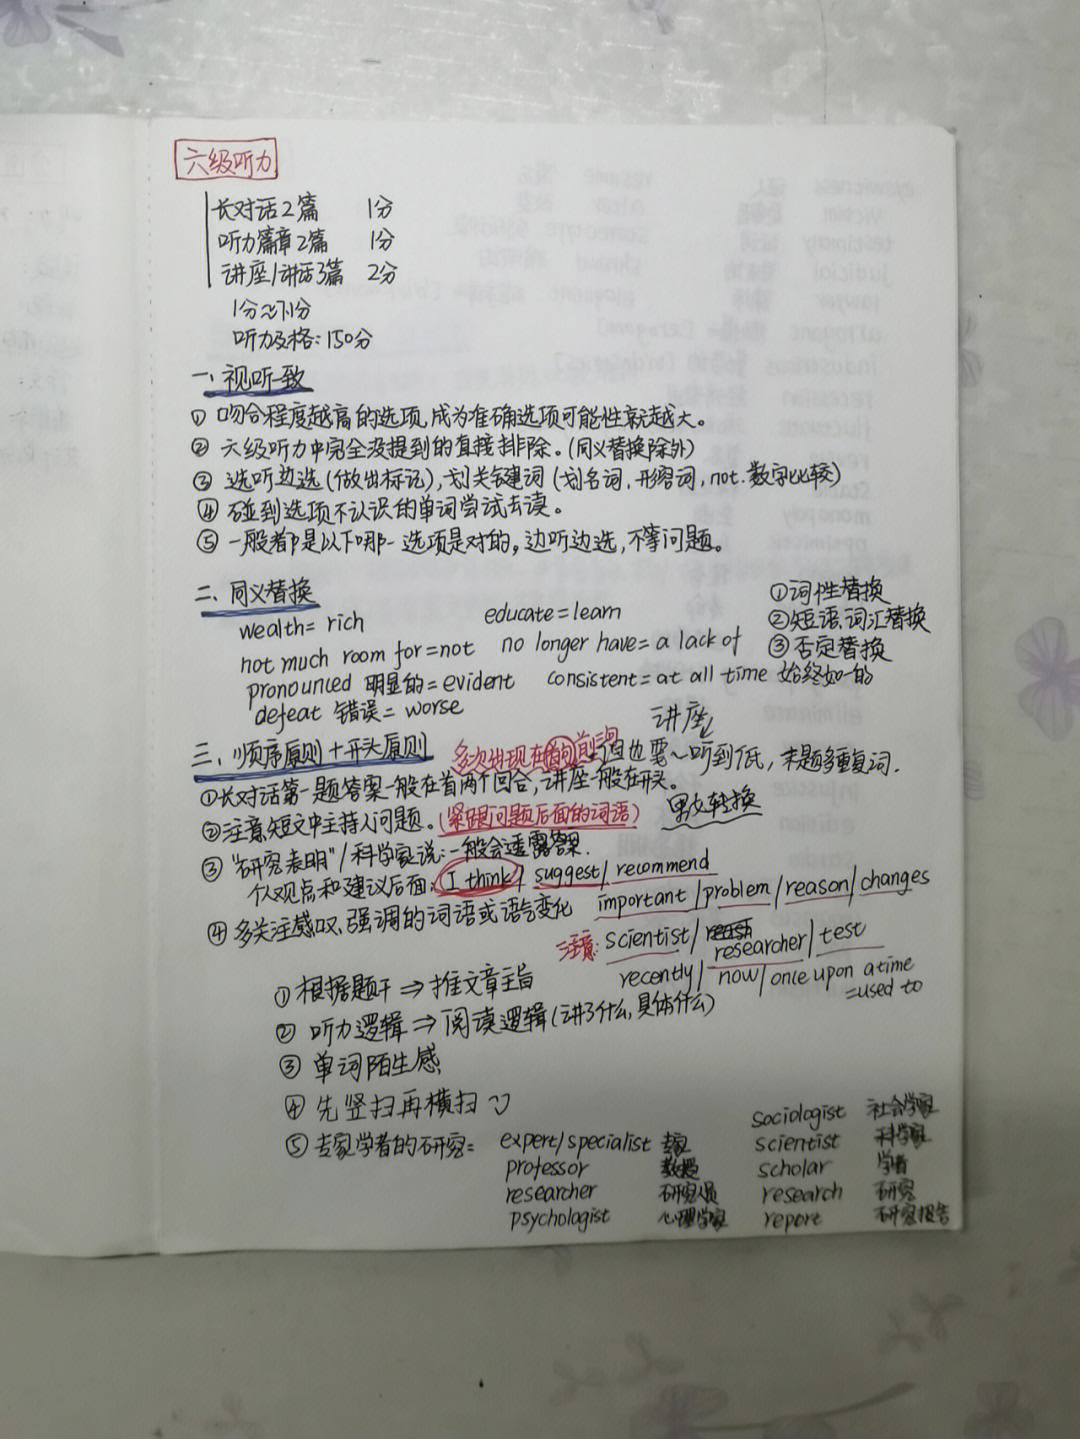 六级听力
长对话2篇 1分
听力篇章2篇 1分
讲座/讲话3篇 2分
1分≈7.1分
听力及格:150分
一、视听一致
① 吻合程度越高的选项,成为准确选项可能性就越大。
② 六级听力中完全没提到的直接排除。(同义替换除外)
③ 选听边选(做出标记),划关键词(划名词,形容词,not.数字比较)
④ 碰到选项不认识的单词尝试去读。
⑤ 一般都是以下哪一选项是对的,边听边选,不等问题。
二、同义替换
wealth= rich educate=learn
not much room for=not no longer have= a lack of
pronounced 明显的= evident consistent= at all time 始终如一的
defeat 错误= worse
①词性替换
②短语、词汇替换
③否定替换
三、顺序原则+开头原则
多次出现在首句前三句
讲座
但也要~听到低,末题多重复词.
①长对话第一题答案一般在首两个回合,讲座一般在开头。
②注意短文中主持人问题。(紧跟问题后面的词语)
男女转换
③ "研究表明"/科学家说:一般会透露答案.
个人观点和建议后面: I think / suggest/ recommend
④ 多关注感叹、强调的词语或语气变化
important / problem / reason / changes
注意: scientist / researcher / test
recently / now / once upon a time
=used to
① 根据题干⇒推文章主旨
② 听力逻辑⇒阅读逻辑(讲了什么,具体什么)
③ 单词陌生感
④ 先竖扫再横扫
sociologist 社会学家
⑤ 专家学者的研究: expert/specialist 专家 scientist 科学家
professor 教授 scholar 学者
researcher 研究员 research 研究
psychologist 心理学家 report 研究报告